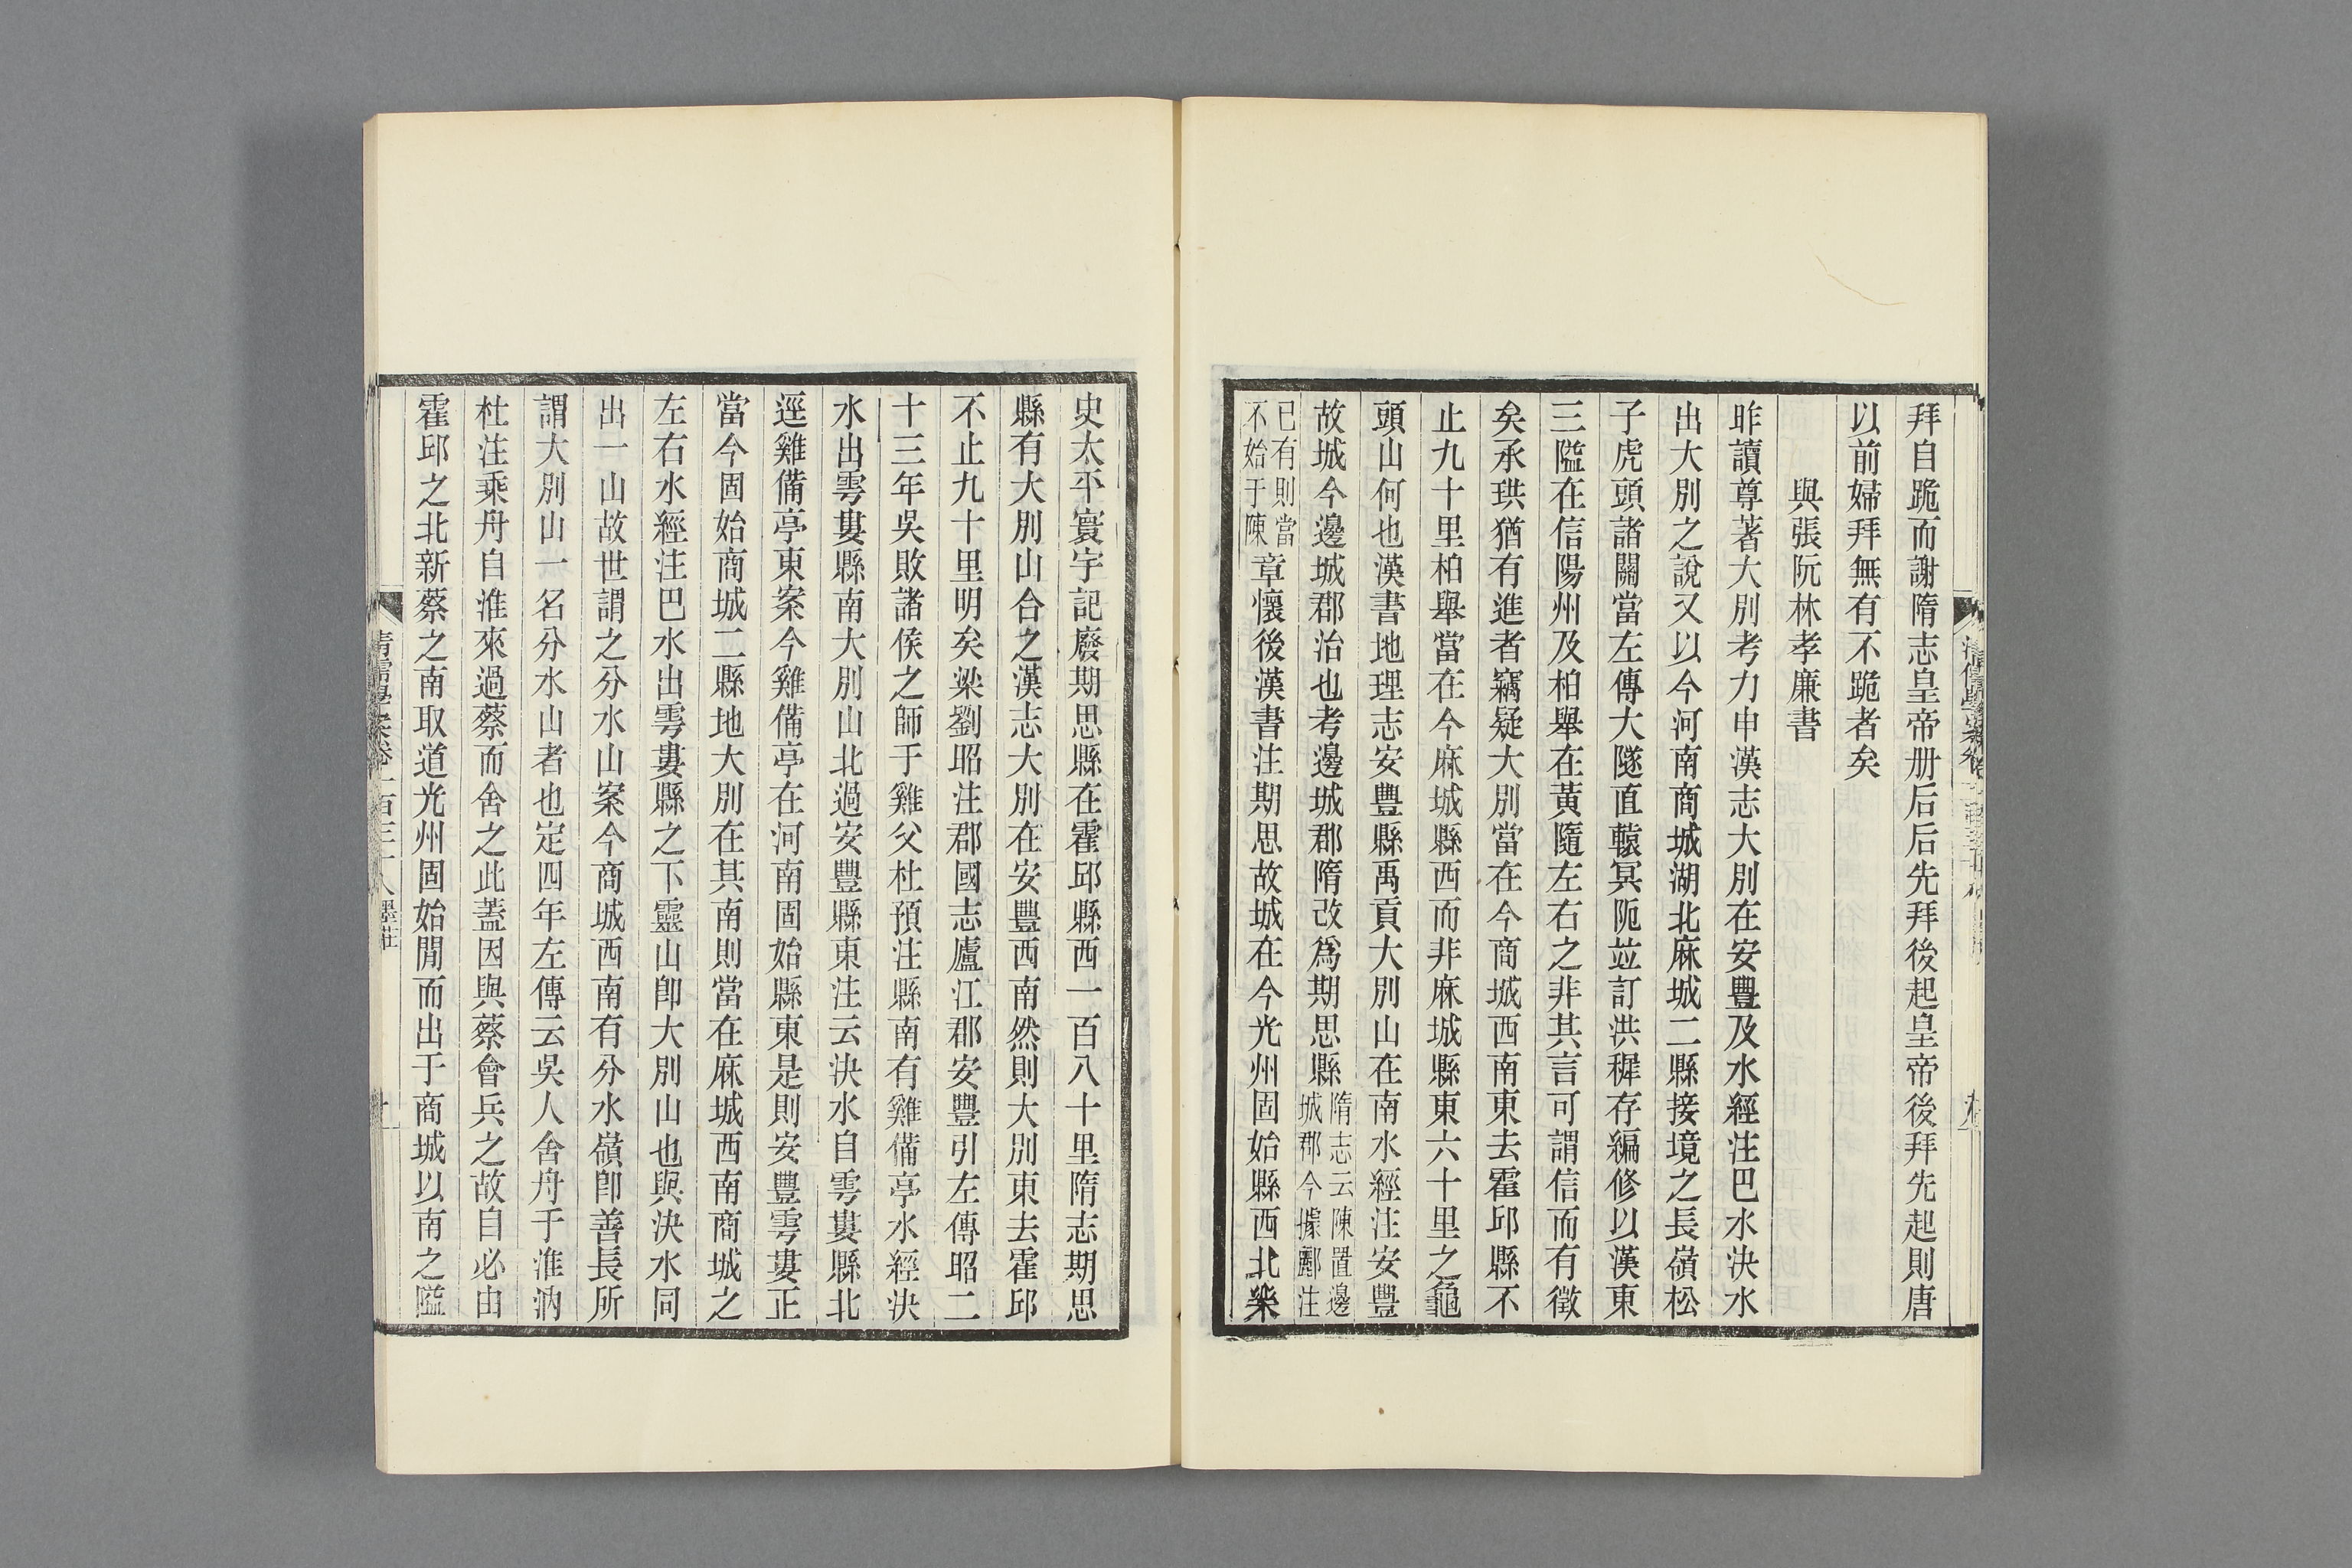 拜自跪而謝隋志皇帝册后后先拜後起皇帝後拜先起則唐
以前婦拜無有不跪者矣
與張阮林孝廉書
昨讀尊著大別考力申漢志大別在安豐及水經注巴水決水
出大別之說又以今河南商城湖北麻城二縣接境之長嶺松
子虎頭諸關當左傳大隧直轅冥阨竝訂洪稺存編修以漢東
三隘在信陽州及柏舉在黃隨左右之非其言可謂信而有徵
矣承珙猶有進者竊疑大別當在今商城西南東去霍邱縣不
止九十里柏舉當在今麻城縣西而非麻城縣東六十里之龜
頭山何也漢書地理志安豐縣禹貢大別山在南水經注安豐
故城今邊城郡治也考邊城郡隋改為期思縣隋志云陳置邊城郡今據酈注
已有則當不始于陳章懷後漢書注期思故城在今光州固始縣西北樂
史太平寰宇記廢期思縣在霍邱縣西一百八十里隋志期思
縣有大別山合之漢志大別在安豐西南然則大別東去霍邱
不止九十里明矣梁劉昭注郡國志廬江郡安豐引左傳昭二
十三年吳敗諸侯之師于雞父杜預注縣南有雞備亭水經決
水出雩婁縣南大別山北過安豐縣東注云決水自雩婁縣北
逕雞備亭東案今雞備亭在河南固始縣東是則安豐雩婁正
當今固始商城二縣地大別在其南則當在麻城西南商城之
左右水經注巴水出雩婁縣之下靈山卽大別山也與決水同
出一山故世謂之分水山案今商城西南有分水嶺卽善長所
謂大別山一名分水山者也定四年左傳云吳人舍舟于淮汭
杜注乘舟自淮來過蔡而舍之此蓋因與蔡會兵之故自必由
霍邱之北新蔡之南取道光州固始閒而出于商城以南之隘
清儒學案卷一百三十八墨莊
十